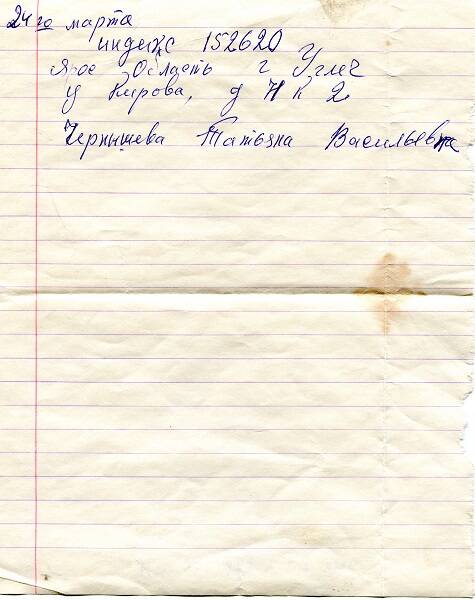 24го марта
индекс 152620
Ярое Область г Углеч
у Кирова, д Н к 2
Чернышева Татьяна Васильевна